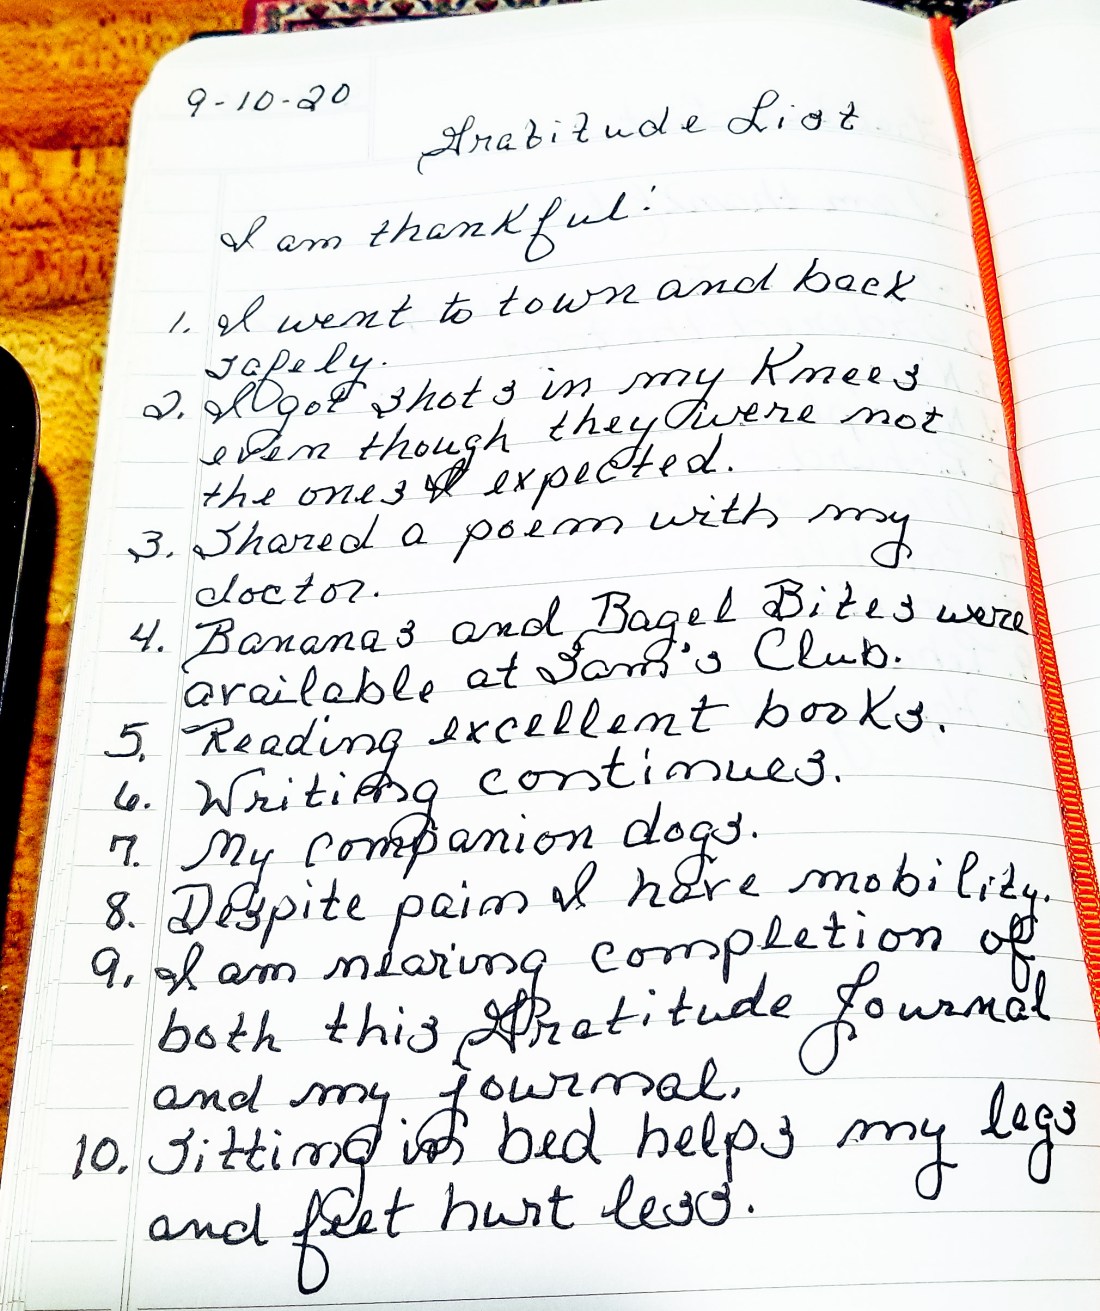 9-10-20
Gratitude List
I am thankful:
1. I went to town and back
safely.
2. I got shots in my Knees
even though they were not
the ones I expected.
3. Shared a poem with my
doctor.
4. Bananas and Bagel Bites were
available at Sam's Club.
5. Reading excellent books.
6. Writing continues.
7. My companion dogs.
8. Despite pain I have mobility.
9. I am nearing completion of
both this Gratitude Journal
and my journal.
10. Sitting in bed helps my legs
and feet hurt less.